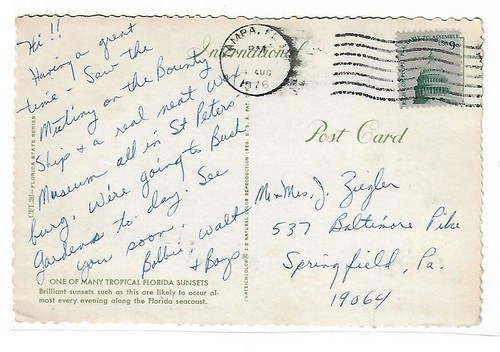 Hi!!
Having a great
time - Saw the
Mutiny on the Bounty
Ship & a real neat Wax
Museum all in St Peters
burg. We're going to Bush
Gardens to-day. See
you soon.
Bobbie, Walt
& Boys
ONE OF MANY TROPICAL FLORIDA SUNSETS
Brilliant sunsets such as this are likely to occur al-
most every evening along the Florida seacoast.
FLORIDA STATE SERIES
International
Post Card
TAMPA, FL
PM
AUG
1976
TO ASSEMBLE
9c
Mr & Mrs. J. Ziegler
537 Baltimore Pike
Springfield, Pa.
19064